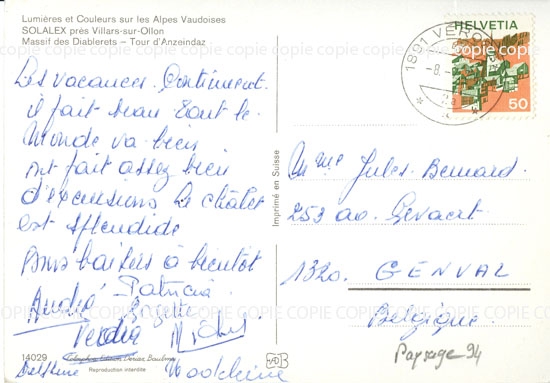 Lumières et Couleurs sur les Alpes Vaudoises
SOLALEX près Villars-sur-Ollon
Massif des Diablerets – Tour d'Anzeindaz
Les vacances. Continuent.
il fait beau tout le
monde va bien
ont fait assez bien
d'excursions Le châlet
est splendide
Bons baisers à bientôt
André Patricia
Michel
Delphine
14029
Reproduction interdite
Imprimé en Suisse
1891 VÉRO
-8.-
HELVETIA
50
Mme Jules Bernard.
253 av. Gevaert.
1320. GENVAL
Belgique.
Paysage 94
COPIE COPIE COPIE COPIE COPIE COPIE